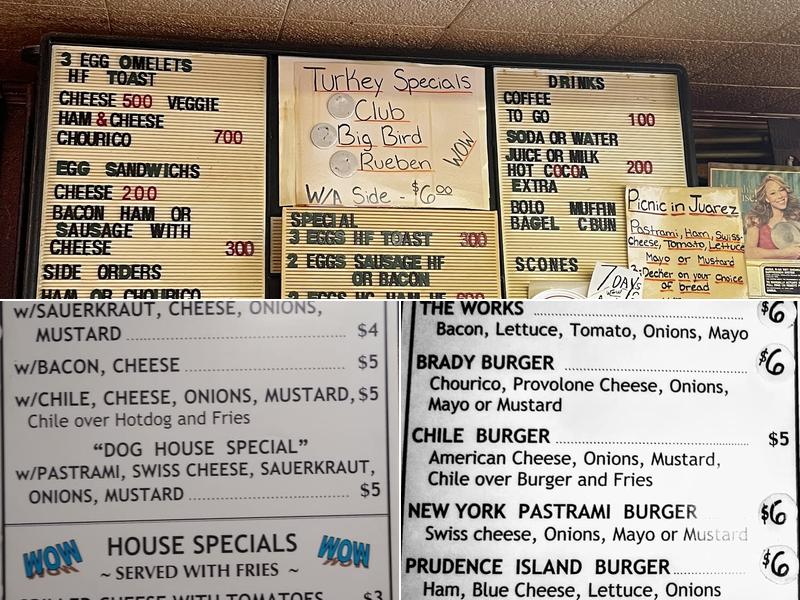 3 EGG OMELETS
HF TOAST
CHEESE 500 VEGGIE
HAM & CHEESE
CHOURICO 700
EGG SANDWICHS
CHEESE 200
BACON HAM OR
SAUSAGE WITH
CHEESE 300
SIDE ORDERS
HAM OR CHOURICO
Turkey Specials
Club
Big Bird
Rueben
WOW
W/A Side - $6.00
SPECIAL
3 EGGS HF TOAST 300
2 EGGS SAUSAGE HF
OR BACON
DRINKS
COFFEE
TO GO 100
SODA OR WATER
JUICE OR MILK
HOT COCOA 200
EXTRA
BOLO MUFFIN
BAGEL C BUN
SCONES
7 DAYS
Picnic in Juarez
Pastrami, Ham, Swiss
Cheese, Tomato, Lettuce
Mayo or Mustard
3-Decker on your choice
of bread
w/SAUERKRAUT, CHEESE, ONIONS,
MUSTARD ........ $4
w/BACON, CHEESE ........ $5
w/CHILE, CHEESE, ONIONS, MUSTARD, $5
Chile over Hotdog and Fries
“DOG HOUSE SPECIAL”
w/PASTRAMI, SWISS CHEESE, SAUERKRAUT,
ONIONS, MUSTARD ........ $5
WOW HOUSE SPECIALS WOW
~ SERVED WITH FRIES ~
GRILLED CHEESE WITH TOMATOES $3
THE WORKS ........ $6
Bacon, Lettuce, Tomato, Onions, Mayo
BRADY BURGER ........ $6
Chourico, Provolone Cheese, Onions,
Mayo or Mustard
CHILE BURGER ........ $5
American Cheese, Onions, Mustard,
Chile over Burger and Fries
NEW YORK PASTRAMI BURGER $6
Swiss cheese, Onions, Mayo or Mustard
PRUDENCE ISLAND BURGER ........ $6
Ham, Blue Cheese, Lettuce, Onions